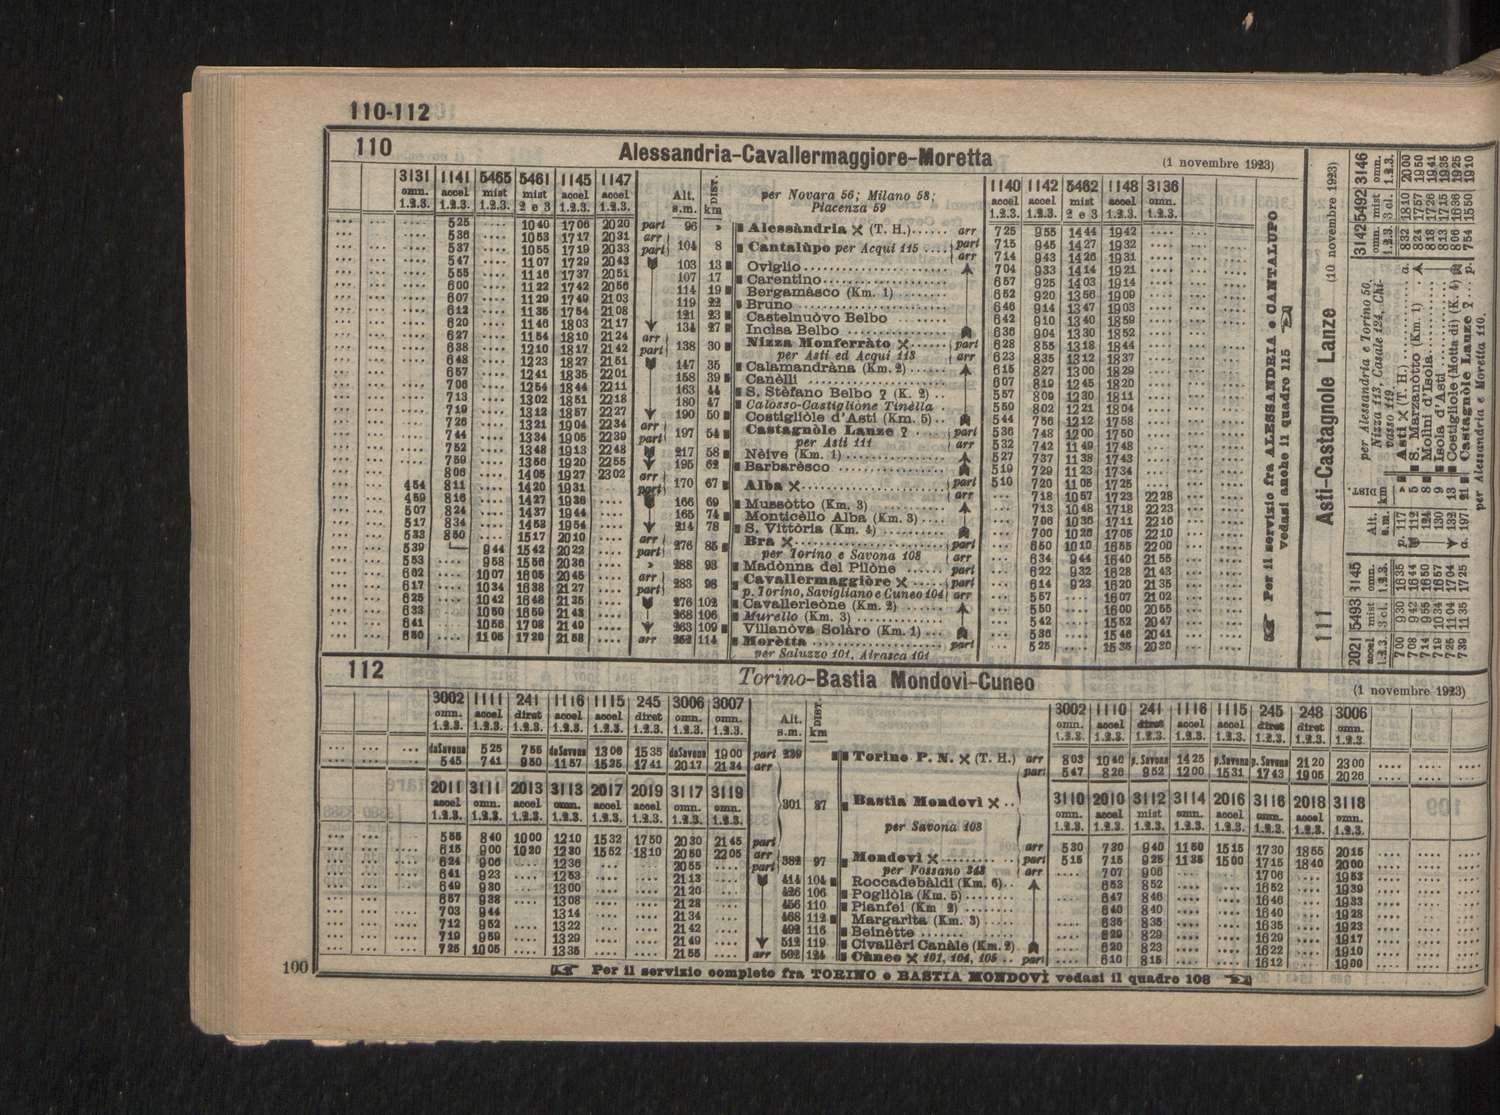 110-112
110
Alessandria-Cavallermaggiore-Moretta
(1 novembre 1923)
3131 1141 5465 5461 1145 1147
omn. accel mist mist accel accel
1.2.3. 1.2.3. 1.2.3. 2 e 3 1.2.3. 1.2.3.
Alt. s.m.
DIST. km
per Novara 56; Milano 58;
Piacenza 59
1140 1142 5462 1148 3136
accel accel mist accel omn.
1.2.3. 1.2.3. 2 e 3 1.2.3. 1.2.3.
525 1040 1706 2020 part 96 » Alessàndria (T. H.)...... arr 725 955 1444 1942
536 1053 1717 2031 arr 715 945 1427 1932 part
537 1055 1719 2033 part 104 8 Cantalùpo per Acqui 115 .... arr 714 943 1426 1931
547 1107 1729 2043 103 13 Oviglio 704 933 1414 1921
555 1116 1737 2051 107 17 Carentino 657 925 1403 1914
600 1122 1742 2056 114 19 Bergamàsco (Km. 1) 652 920 1356 1909
607 1129 1749 2103 119 22 Bruno 646 914 1347 1903
612 1135 1754 2108 121 23 Castelnuòvo Belbo 642 910 1340 1859
620 1146 1803 2117 134 27 Incisa Belbo 636 904 1330 1852
627 1154 1810 2124 arr 138 30 Nizza Monferràto part 628 855 1318 1844
638 1210 1817 2142 part per Asti ed Acqui 113 arr 623 835 1312 1837
648 1223 1827 2151 147 35 Calamandràna (Km. 2) 615 827 1300 1829
657 1241 1835 2201 158 39 Canèlli 607 819 1245 1820
706 1254 1844 2211 163 44 S. Stèfano Belbo (K. 2) 557 809 1230 1811
713 1302 1851 2218 180 47 Calosso-Castigliòne Tinèlla 550 802 1221 1804
719 1312 1857 2227 190 50 Costigliòle d'Asti (Km. 5) 544 756 1212 1758
726 1321 1904 2234 arr 197 54 Castagnòle Lanze part 536 748 1200 1750
744 1334 1905 2239 part per Asti 111 arr 532 742 1149 1748
752 1348 1913 2248 217 58 Nèive (Km. 1) 527 737 1138 1743
759 1356 1920 2255 195 62 Barbarèsco 519 729 1123 1734
806 1405 1927 2302 arr 170 67 Alba part 510 720 1105 1725
454 811 1420 1931 part arr 718 1057 1723 2228
459 816 1427 1936 166 69 Mussòtto (Km. 3) 713 1048 1718 2223
507 824 1437 1944 165 74 Monticèllo Alba (Km. 3) 706 1036 1711 2216
517 834 1453 1954 214 78 S. Vittòria (Km. 4) 700 1026 1705 2210
533 850 1517 2010 arr 276 85 Bra part 650 1010 1655 2200
539 944 1542 2022 part per Torino e Savona 108 634 944 1640 2155
553 958 1556 2036 » 288 93 Madònna del Pilòne part 622 932 1628 2143
602 1007 1605 2045 arr 283 98 Cavallermaggiòre part 614 923 1620 2135
617 1034 1638 2127 part p. Torino, Savigliano e Cuneo 104 arr 557 1607 2102
625 1042 1648 2135 276 102 Cavallerleòne (Km. 2) 550 1600 2055
633 1050 1659 2143 268 106 Murello (Km. 3) 542 1552 2047
641 1056 1708 2149 263 109 Villanòva Solàro (Km. 1) 536 1546 2041
650 1105 1720 2158 arr 252 114 Morètta part 525 1535 2030
per Saluzzo 101, Airasca 101
Per il servizio fra ALESSANDRIA e CANTALUPO
vedasi anche il quadro 115
111
Asti-Castagnole Lanze
(10 novembre 1923)
2021 5493 3145
accel mist omn.
1.2.3. 3 cl. 1.2.3.
Alt. s.m.
DIST. km
per Alessandria e Torino 50,
Nizza 113, Casale 124, Chi-
vasso 119.
3142 5492 3146
omn. mist omn.
1.2.3. 3 cl. 1.2.3.
700 930 1635 p. 117 » Asti (T. H.) a. 832 1810 2000
708 942 1644 112 5 S. Marzanòtto (Km. 1) 824 1757 1950
714 955 1650 124 8 Molini d'Isola 818 1736 1941
719 1034 1657 130 9 Isola d'Asti 813 1715 1935
725 1104 1704 132 13 Costigliole (Motta di) (K. 4) 806 1636 1925
739 1135 1725 a. 197 21 Castagnòle Lanze p. 754 1550 1910
per Alessandria e Moretta 110.
112
Torino-Bastia Mondovì-Cuneo
(1 novembre 1923)
3002 1111 241 1116 1115 245 3006 3007
omn. accel diret accel accel diret omn. omn.
1.2.3. 1.2.3. 1.2.3. 1.2.3. 1.2.3. 1.2.3. 1.2.3. 1.2.3.
Alt. s.m.
DIST. km
3002 1110 241 1116 1115 245 248 3006
omn. accel diret accel accel diret diret omn.
1.2.3. 1.2.3. 1.2.3. 1.2.3. 1.2.3. 1.2.3. 1.2.3. 1.2.3.
da Savona 525 755 da Savona 1306 1535 da Savona 1900 part 239 Torino P. N. (T. H.) arr 803 1040 p. Savona 1425 p. Savona p. Savona 2120 2300
545 741 950 1157 1525 1741 2017 2134 arr part 547 826 952 1200 1531 1743 1905 2026
2011 3111 2013 3113 2017 2019 3117 3119
accel omn. accel omn. accel accel omn. omn.
1.2.3. 1.2.3. 1.2.3. 1.2.3. 1.2.3. 1.2.3. 1.2.3. 1.2.3.
301 87 Bastia Mondovì
per Savona 108
3110 2010 3112 3114 2016 3116 2018 3118
omn. accel mist omn. accel omn. accel omn.
1.2.3. 1.2.3. 1.2.3. 1.2.3. 1.2.3. 1.2.3. 1.2.3. 1.2.3.
555 840 1000 1210 1532 1750 2030 2145 part arr 530 730 940 1150 1515 1730 1855 2015
615 900 1020 1230 1552 1810 2050 2205 arr 382 97 Mondovì part 515 715 925 1135 1500 1715 1840 2000
624 906 1236 2055 part per Fossano 343 arr 707 906 1706 1953
641 923 1253 2113 414 104 Roccadebàldi (Km. 6) 653 852 1652 1939
649 930 1300 2120 426 106 Pogliòla (Km. 5) 647 846 1646 1933
657 938 1308 2128 456 110 Pianfei (Km 2) 640 840 1640 1928
703 944 1314 2134 468 112 Margarìta (Km. 3) 635 835 1635 1923
712 952 1322 2142 492 116 Beinètte 629 829 1629 1917
719 959 1329 2149 512 119 Civallèri Canàle (Km. 2) 620 823 1622 1910
725 1005 1335 2155 arr 502 124 Cùneo 101, 104, 105 part 610 815 1612 1900
100
Per il servizio completo fra TORINO e BASTIA MONDOVÌ vedasi il quadro 108